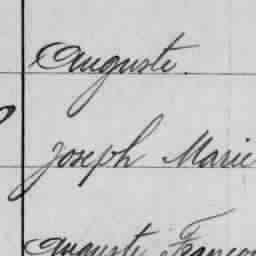 Auguste.
Joseph Marie
Auguste Françoi